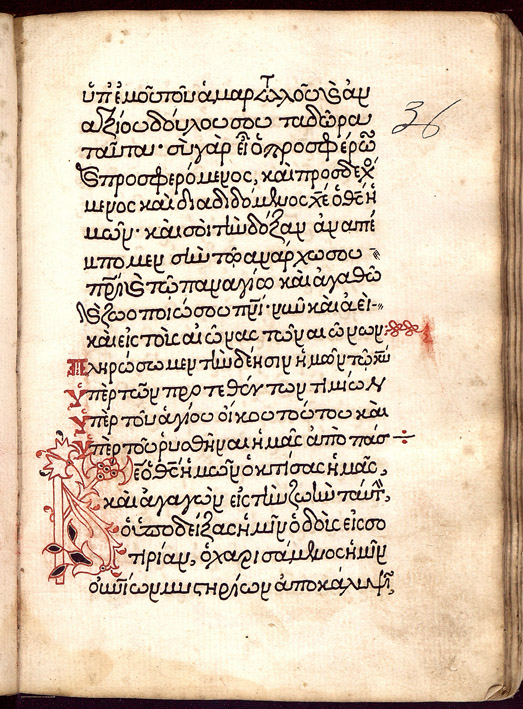 ὑπ' ἐμοῦ τοῦ ἁμαρτωλοῦ καὶ ἀν
αξίου δούλου σου τα δῶρα
ταῦτα· σὺ γὰρ εἶ ὁ προσφέρων
καὶ προσφερόμενος, καὶ προσδεχό
μενος καὶ διαδιδόμενος χε ὁ θς ἡ
μῶν· καὶ σοὶ τὴν δόξαν ἀναπέ
μπομεν σὺν τῷ ἀνάρχω σου
πρὶ καὶ τῷ παναγίω καὶ ἀγαθῶ
καὶ ζωοποιῶ σου πνι· νῦν καὶ ἀεὶ
καὶ εἰς τοὺς αἰῶνας τῶν αἰώνων:
Πληρώσωμεν τὴν δέησιν ἡμῶν τῶ κω
Ὑπὲρ τῶν προτεθέντων τιμίων
Ὑπὲρ τοῦ ἁγίου οἴκου τούτου καὶ
Ὑπὲρ τοῦ ρυσθῆναι ἡμᾶς ἀπὸ πάσ
Κε ὁ θς ἡμῶν ὁ κτίσας ἡμᾶς,
καὶ ἀγαγὼν εἰς τὴν ζωὴν ταύτ,
ὁ ὑποδείξας ἡμῖν ὁδοὺς εἰς σω
τηρίαν, ὁ χαρισάμενος ἡμῖν
οὐνίων μυστηρίων ἀποκάλυψι,
36